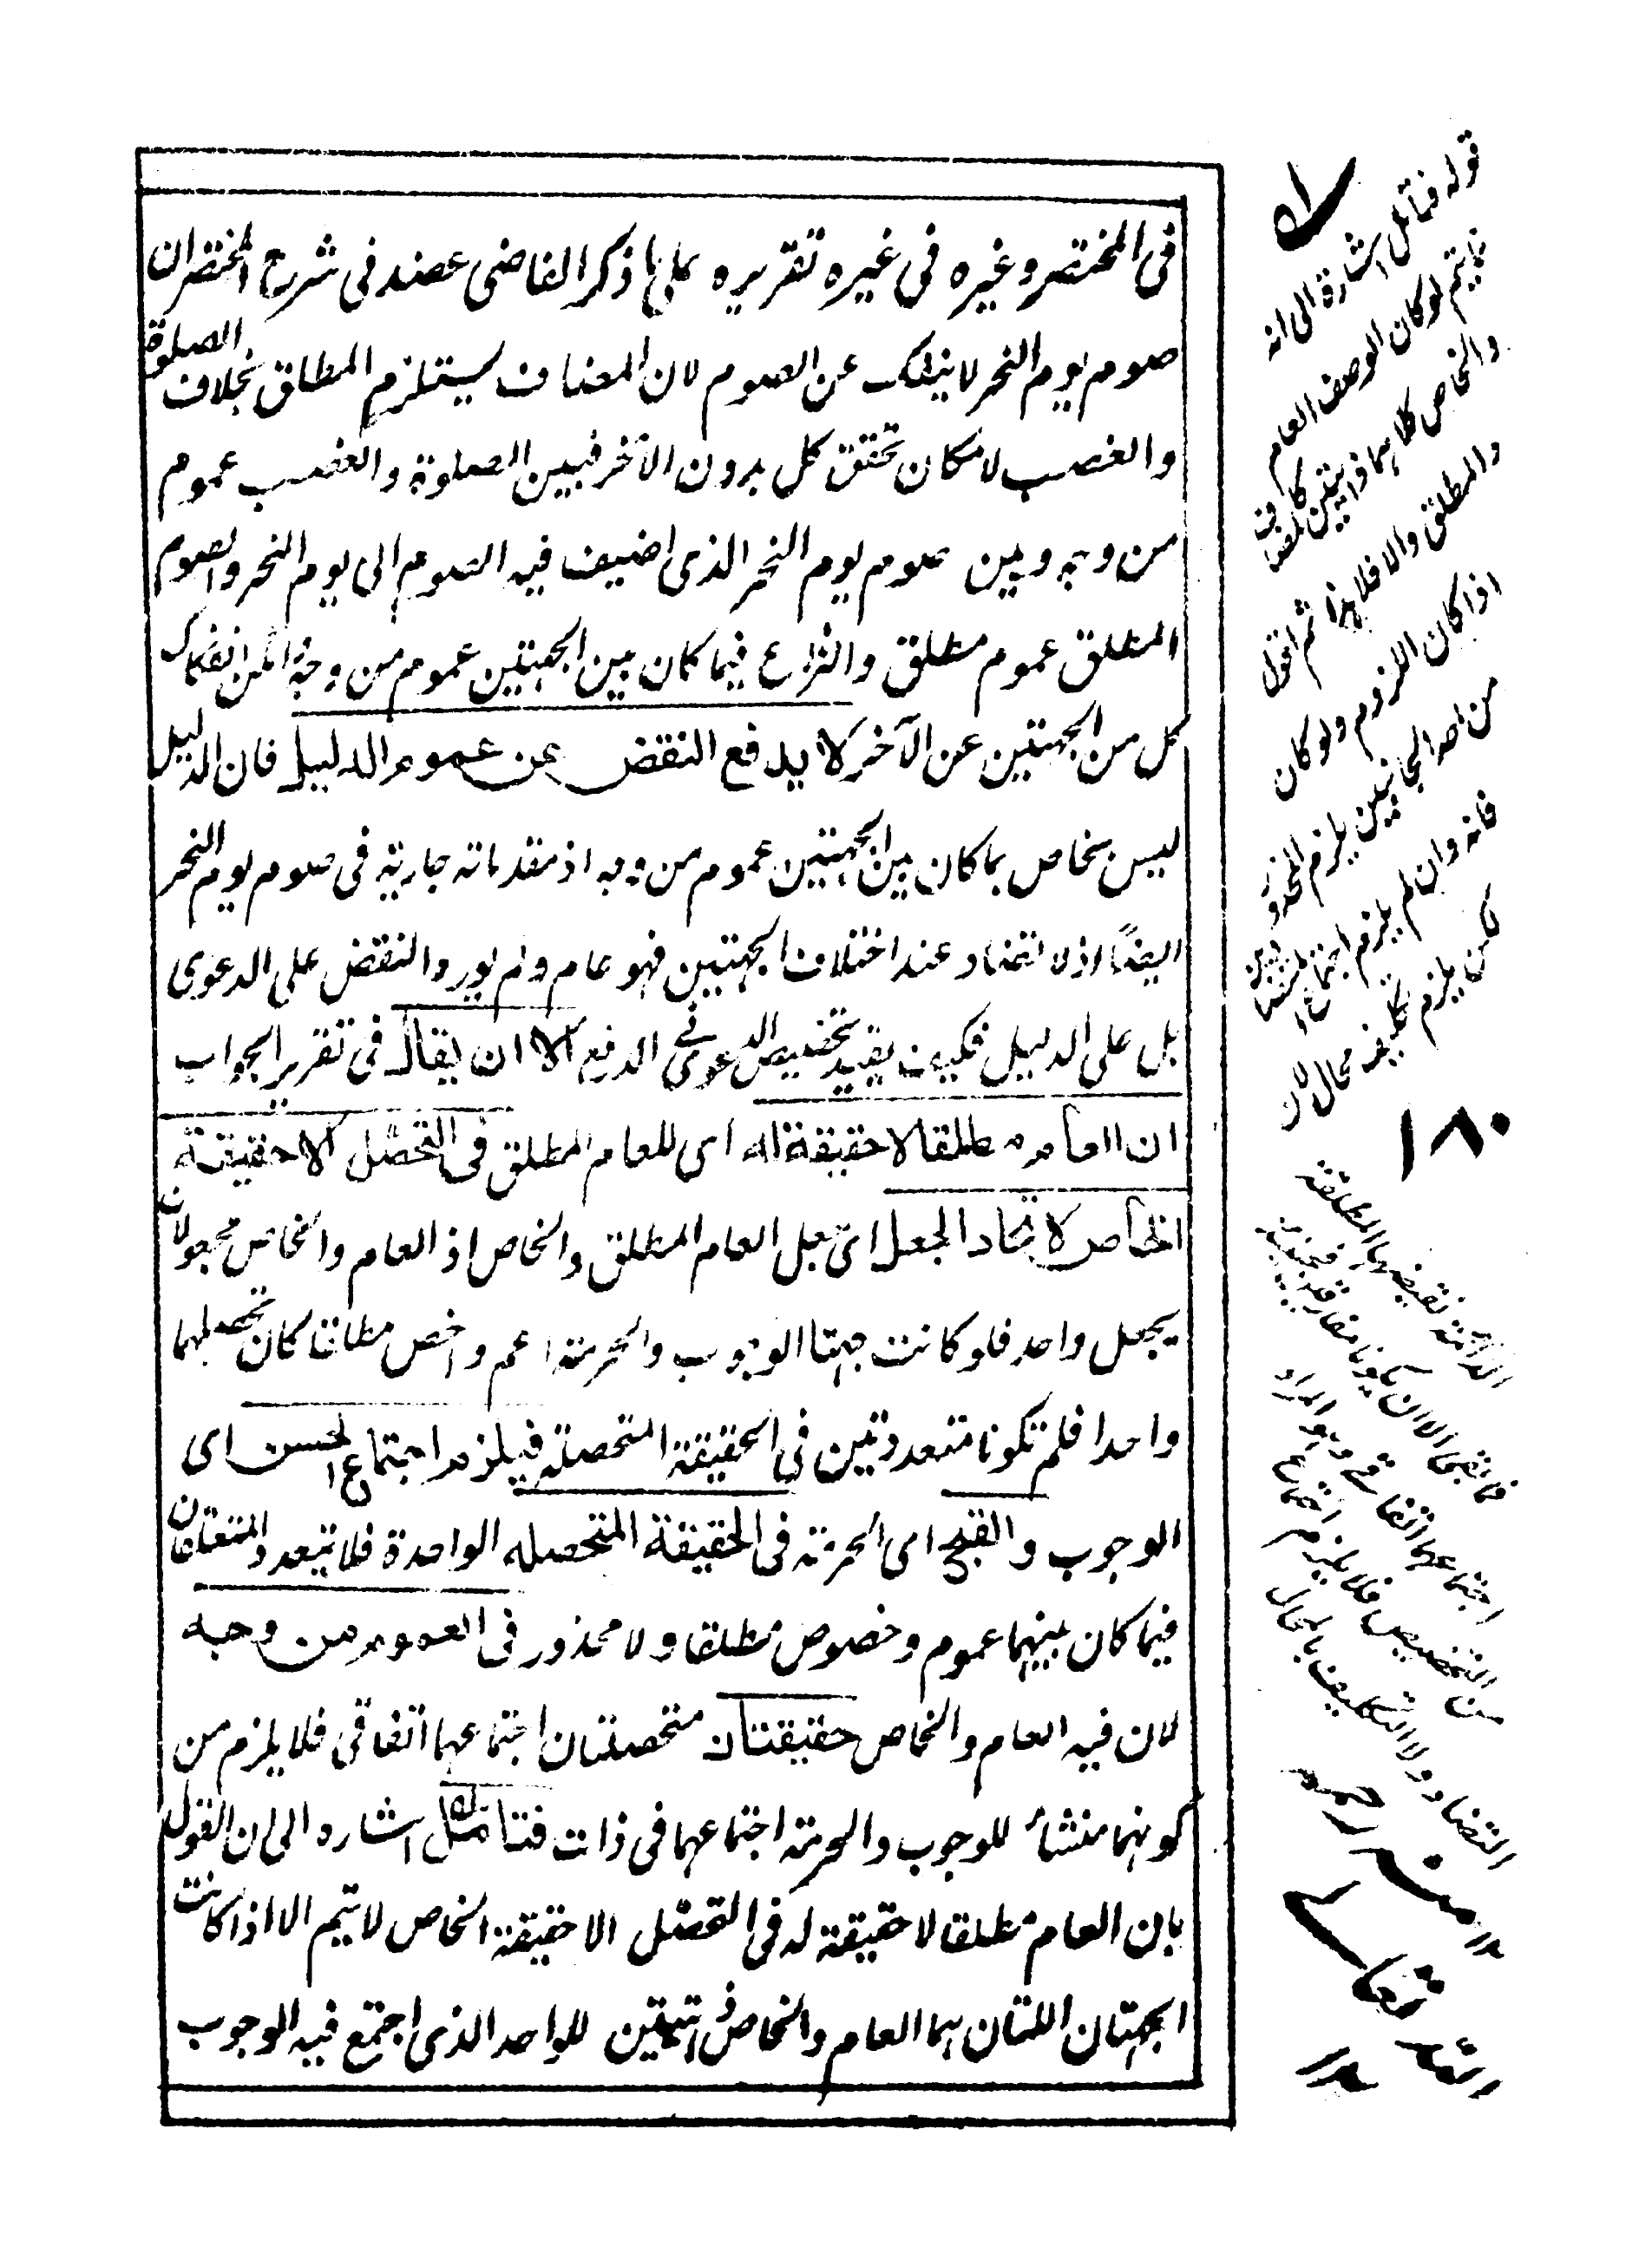 فى المختصر وغيره فى غيره تقريره على ما ذكر القاضى عضد فى شرح المختصر ان
صوم يوم النحر لا ينفك عن الصوم لان المضاف يستلزم المطلق بخلاف الصلوة
والغصب لامكان تحقق كل بدون الآخر فبين الصلوة والغصب عموم
من وجه وبين صوم يوم النحر الذى اضيف فيه الصوم الى يوم النحر والصوم
المطلق عموم مطلق والنزاع فيما كان بين الجهتين عموم من وجه امكن انفكاك
كل من الجهتين عن الآخر لا يدفع النقض عن عموم الدليل فان الدليل
ليس بخاص بما كان بين الجهتين عموم من وجه اذ مقدماته جارية فى صوم يوم النحر
ايضًا اذ لا تضاد عند اختلاف الجهتين فهو عام ولم يورد النقض على الدعوى
بل على الدليل فكيف يفيد تخصيص الدعوى فى الدفع الا ان يقال فى تقرير الجواب
ان العام مطلقا لا حقيقة له اى للعام المطلق فى التحصّل الا حقيقة
الخاص لاتحاد الجعل اى جعل العام المطلق والخاص اذ العام والخاص مجعولان
بجعل واحد فلو كانت جهتا الوجوب والحرمة اعم واخص مطلقا كان تحصلهما
واحدا فلم تكونا متعددتين فى الحقيقة المتحصلة فيلزم اجتماع الحسن اى
الوجوب والقبح اى الحرمة فى الحقيقة المتحصله الواحدة فلا يتعدد المتعلقان
فيما كان بينهما عموم وخصوص مطلقا ولا محذور فى العموم من وجه
لان فيه العام والخاص حقيقتان متحصلتان اجتماعهما اتفاقى فلا يلزم من
كونهما منشأ للوجوب والحرمة اجتماعهما فى ذات فتامل اشاره الى ان القول
بان العام مطلقا لا حقيقة له فى التحصّل الا حقيقة الخاص لا يتم الا اذا كانت
الجهتان اللتان هما العام والخاص ذاتيتين للواحد الذى اجتمع فيه الوجوب
قوله فتامل اشارة الى انه
انما يتم لو كان الوصف العام
والخاص كلاهما ذاتيين كالمضاف
والمطلق والا فلا هذا ثم اقول
اذا كان اللزوم ولو كان
من احد الجانبين يلزم المحذور
فانه وان لم يلزم اجتماع المتضادين
لكن يلزم تكليف محال لان
١٨٠
الدائمة نقيضها المطلقة
اجتماعهما اتفاقى والمراد
من التخصيص فلا يلزم اجتماع
التضاد ولا التكليف بالمحال
١٢ منه رحمه
الله تعالى
١٢